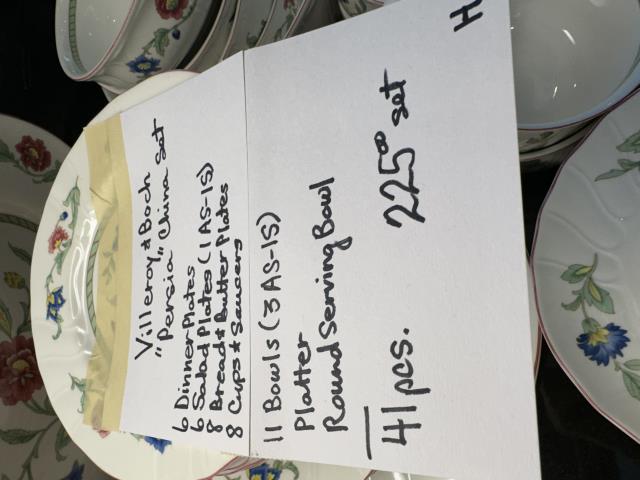 Villeroy & Boch
"Persia" China Set
6 Dinner Plates
6 Salad Plates (1 AS-IS)
8 Bread & Butter Plates
8 Cups & Saucers
11 Bowls (3 AS-IS)
Platter
Round Serving Bowl
41 pcs. 225 00 set
H